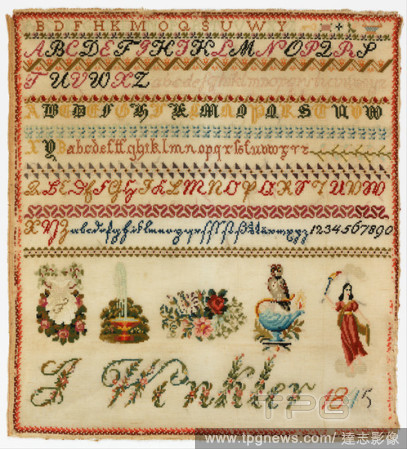 B D F H K M O Q S U W Y
A B C D E F G H I K L M N O P Q R S
T U V W X Z abcdefghiklmnopqrstuvwxyz
A B C D E F G H I K L M N O P Q R S T U V W
X Y Z abcdefghiklmnopqrstuvwxyz
A B C D E F G H I K L M N O P Q R S T U V W
X Y Z 1234567890
J Winkler 1845
TPG
www.tpgnews.com / 達志影像